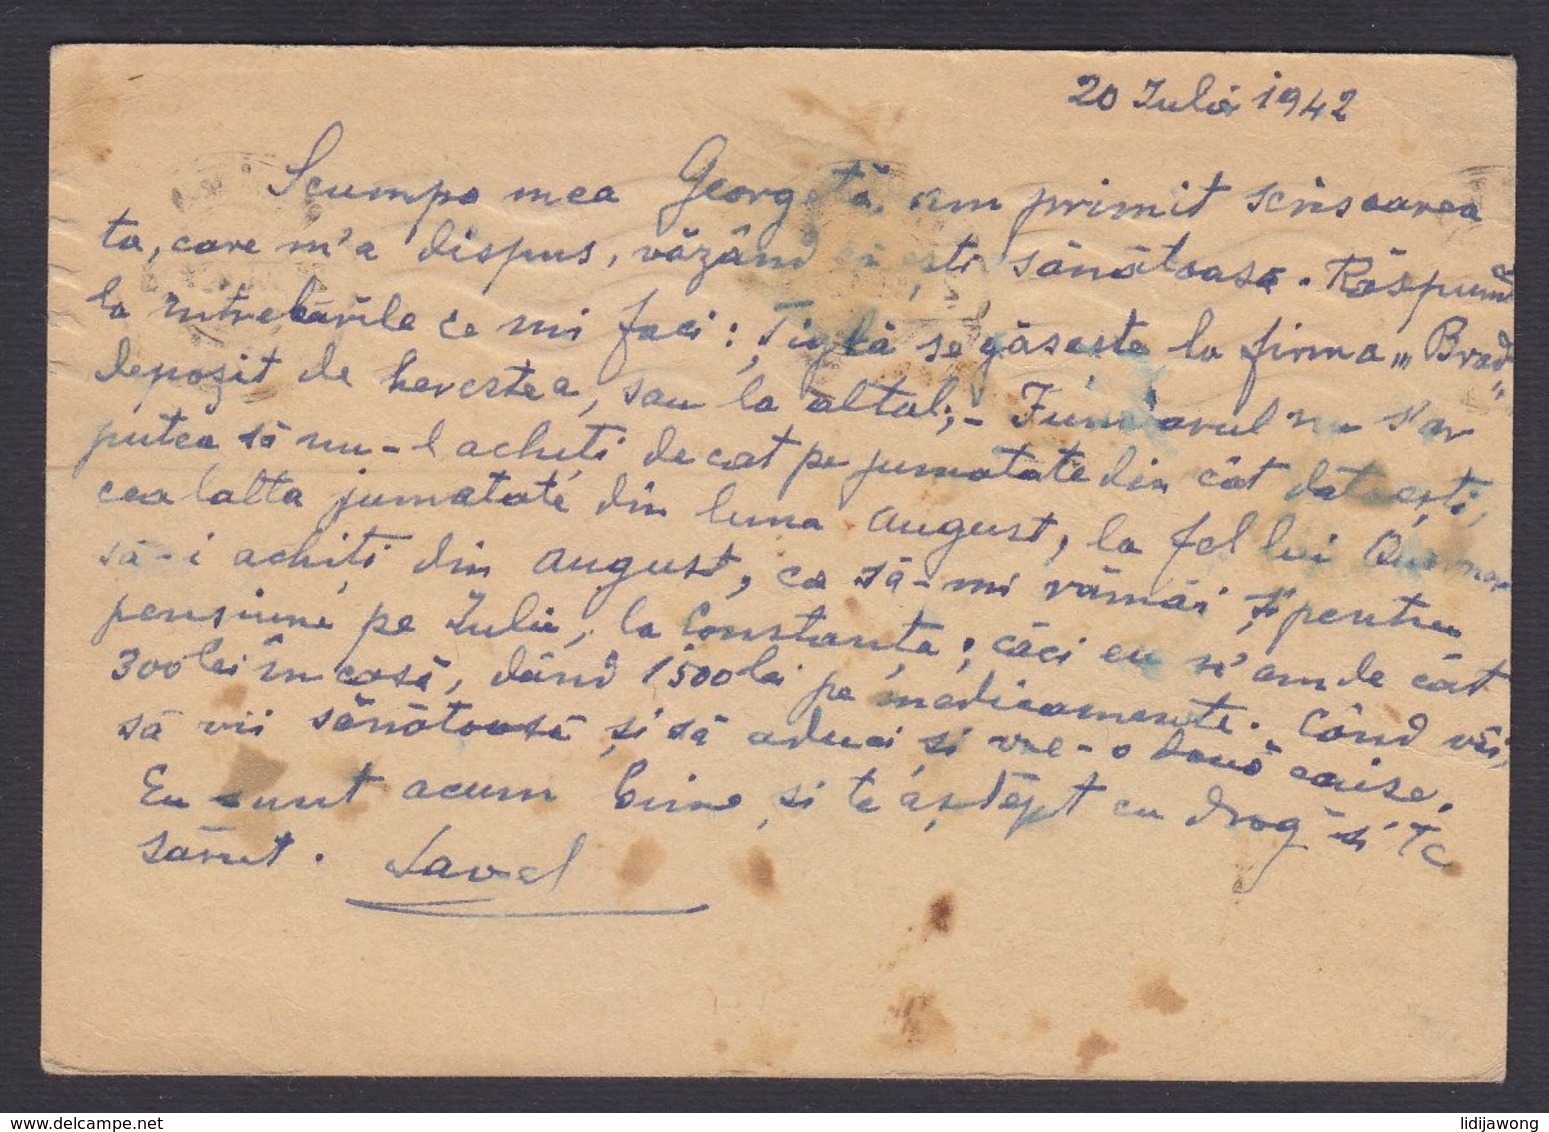 20 Iulie 1942
Scumpa mea Georgetă, am primit scrisoarea
ta, care m'a dispus, văzând că ești sănătoasă. Răspund
la întrebările ce mi faci: Țiglă se găsește la firma „Brad"
depozit de cherestea, sau la altul;- nu s'ar
putea să nu-l achiți decat pe jumatate din cât datorești,
cealalta jumatate din luna august, la fel lui
să-i achiți din august, ca să-mi rămâi și pentru
pensiune pe Iulie, la Constanța; căci eu n'am de cât
300 lei în casă, dând 1500 lei pe medicamente. Când vii,
să vii sănătoasă și să aduci și vre-o două caise.
Eu sunt acum bine și te aștept cu drag și te
sărut. Lavel
lidijawong